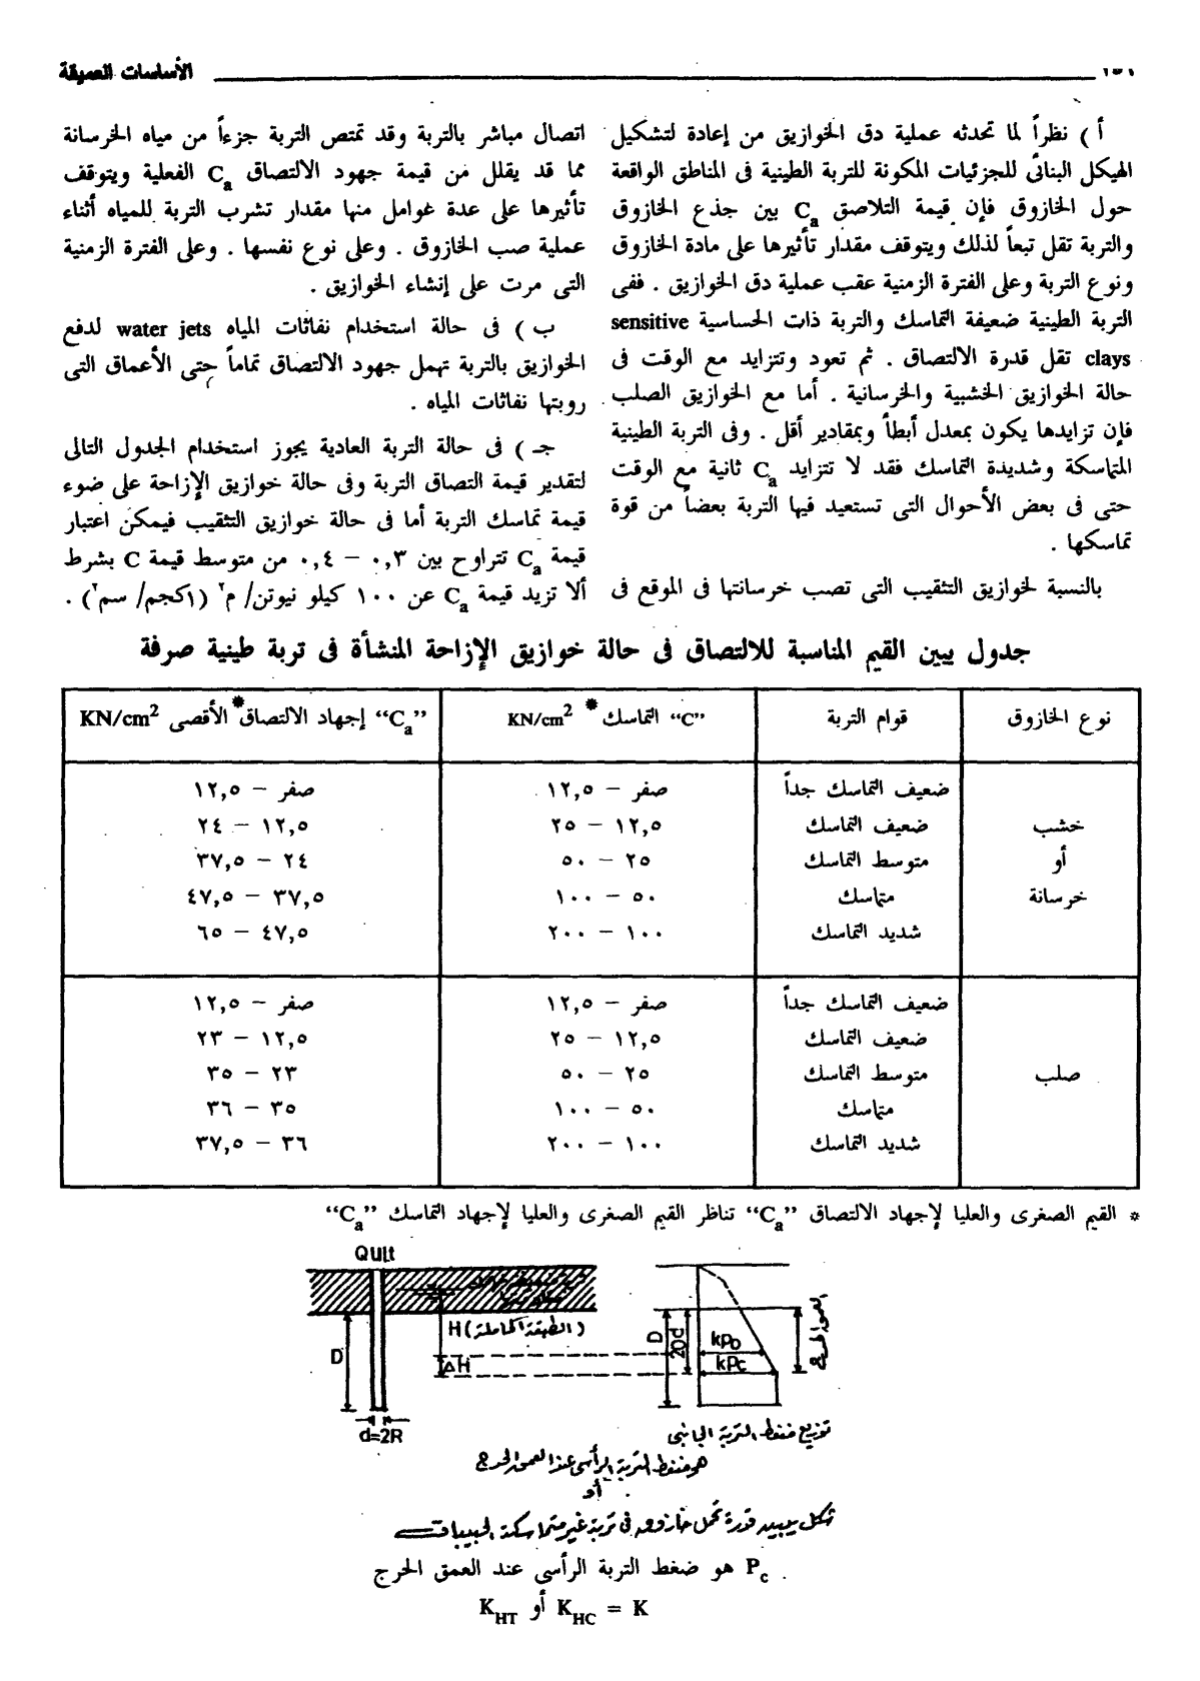 الأساسات العميقة
أ ) نظراً لما تحدثه عملية دق الخوازيق من إعادة لتشكيل
الهيكل البنائى للجزئيات المكونة للتربة الطينية فى المناطق الواقعة
حول الخازوق فإن قيمة التلاصق Ca بين جذع الخازوق
والتربة تقل تبعاً لذلك ويتوقف مقدار تأثيرها على مادة الخازوق
ونوع التربة وعلى الفترة الزمنية عقب عملية دق الخوازيق . ففى
التربة الطينية ضعيفة التماسك والتربة ذات الحساسية sensitive
clays تقل قدرة الالتصاق . ثم تعود وتتزايد مع الوقت فى
حالة الخوازيق الخشبية والخرسانية . أما مع الخوازيق الصلب
فإن تزايدها يكون بمعدل أبطأ وبمقادير أقل . وفى التربة الطينية
المتماسكة وشديدة التماسك فقد لا تتزايد Ca ثانية مع الوقت
حتى فى بعض الأحوال التى تستعيد فيها التربة بعضاً من قوة
تماسكها .
بالنسبة لخوازيق التثقيب التى تصب خرسانتها فى الموقع فى
اتصال مباشر بالتربة وقد تمتص التربة جزءاً من مياه الخرسانة
مما قد يقلل من قيمة جهود الالتصاق Ca الفعلية ويتوقف
تأثيرها على عدة غوامل منها مقدار تشرب التربة للمياه أثناء
عملية صب الخازوق . وعلى نوع نفسها . وعلى الفترة الزمنية
التى مرت على إنشاء الخوازيق .
ب ) فى حالة استخدام نفاثات المياه water jets لدفع
الخوازيق بالتربة تهمل جهود الالتصاق تماماً حتى الأعماق التى
روبتها نفاثات المياه .
جـ ) فى حالة التربة العادية يجوز استخدام الجدول التالى
لتقدير قيمة التصاق التربة وفى حالة خوازيق الإزاحة على ضوء
قيمة تماسك التربة أما فى حالة خوازيق التثقيب فيمكن اعتبار
قيمة Ca تتراوح بين ٠,٣ – ٠,٤ من متوسط قيمة C بشرط
ألا تزيد قيمة Ca عن ١٠٠ كيلو نيوتن/ م٢ (١كجم/ سم٢) .
جدول يبين القيم المناسبة للالتصاق فى حالة خوازيق الإزاحة المنشأة فى تربة طينية صرفة
نوع الخازوق قوام التربة “C” التماسك * KN/cm2 “Ca” إجهاد الالتصاق* الأقصى KN/cm2
ضعيف التماسك جداً صفر – ١٢,٥ صفر – ١٢,٥
خشب ضعيف التماسك ١٢,٥ – ٢٥ ١٢,٥ – ٢٤
أو متوسط التماسك ٢٥ – ٥٠ ٢٤ – ٣٧,٥
خرسانة متماسك ٥٠ – ١٠٠ ٣٧,٥ – ٤٧,٥
شديد التماسك ١٠٠ – ٢٠٠ ٤٧,٥ – ٦٥
ضعيف التماسك جداً صفر – ١٢,٥ صفر – ١٢,٥
ضعيف التماسك ١٢,٥ – ٢٥ ١٢,٥ – ٢٣
صلب متوسط التماسك ٢٥ – ٥٠ ٢٣ – ٣٥
متماسك ٥٠ – ١٠٠ ٣٥ – ٣٦
شديد التماسك ١٠٠ – ٢٠٠ ٣٦ – ٣٧,٥
* القيم الصغرى والعليا لإجهاد الالتصاق “Ca” تناظر القيم الصغرى والعليا لإجهاد التماسك “Ca”
Qult
H (الطبقة الحاملة)
D
ΔH
d=2R
D
20d
kPD
kPc
العمق الحرج
توزيع ضغط التربة الجانبى
هو ضغط التربة الرأسى عند العمق الحرج
أو
شكل يبين قدرة تحمل خازوق فى تربة غير متماسكة الحبيبات
Pc هو ضغط التربة الرأسى عند العمق الحرج .
KHT أو KHC = K